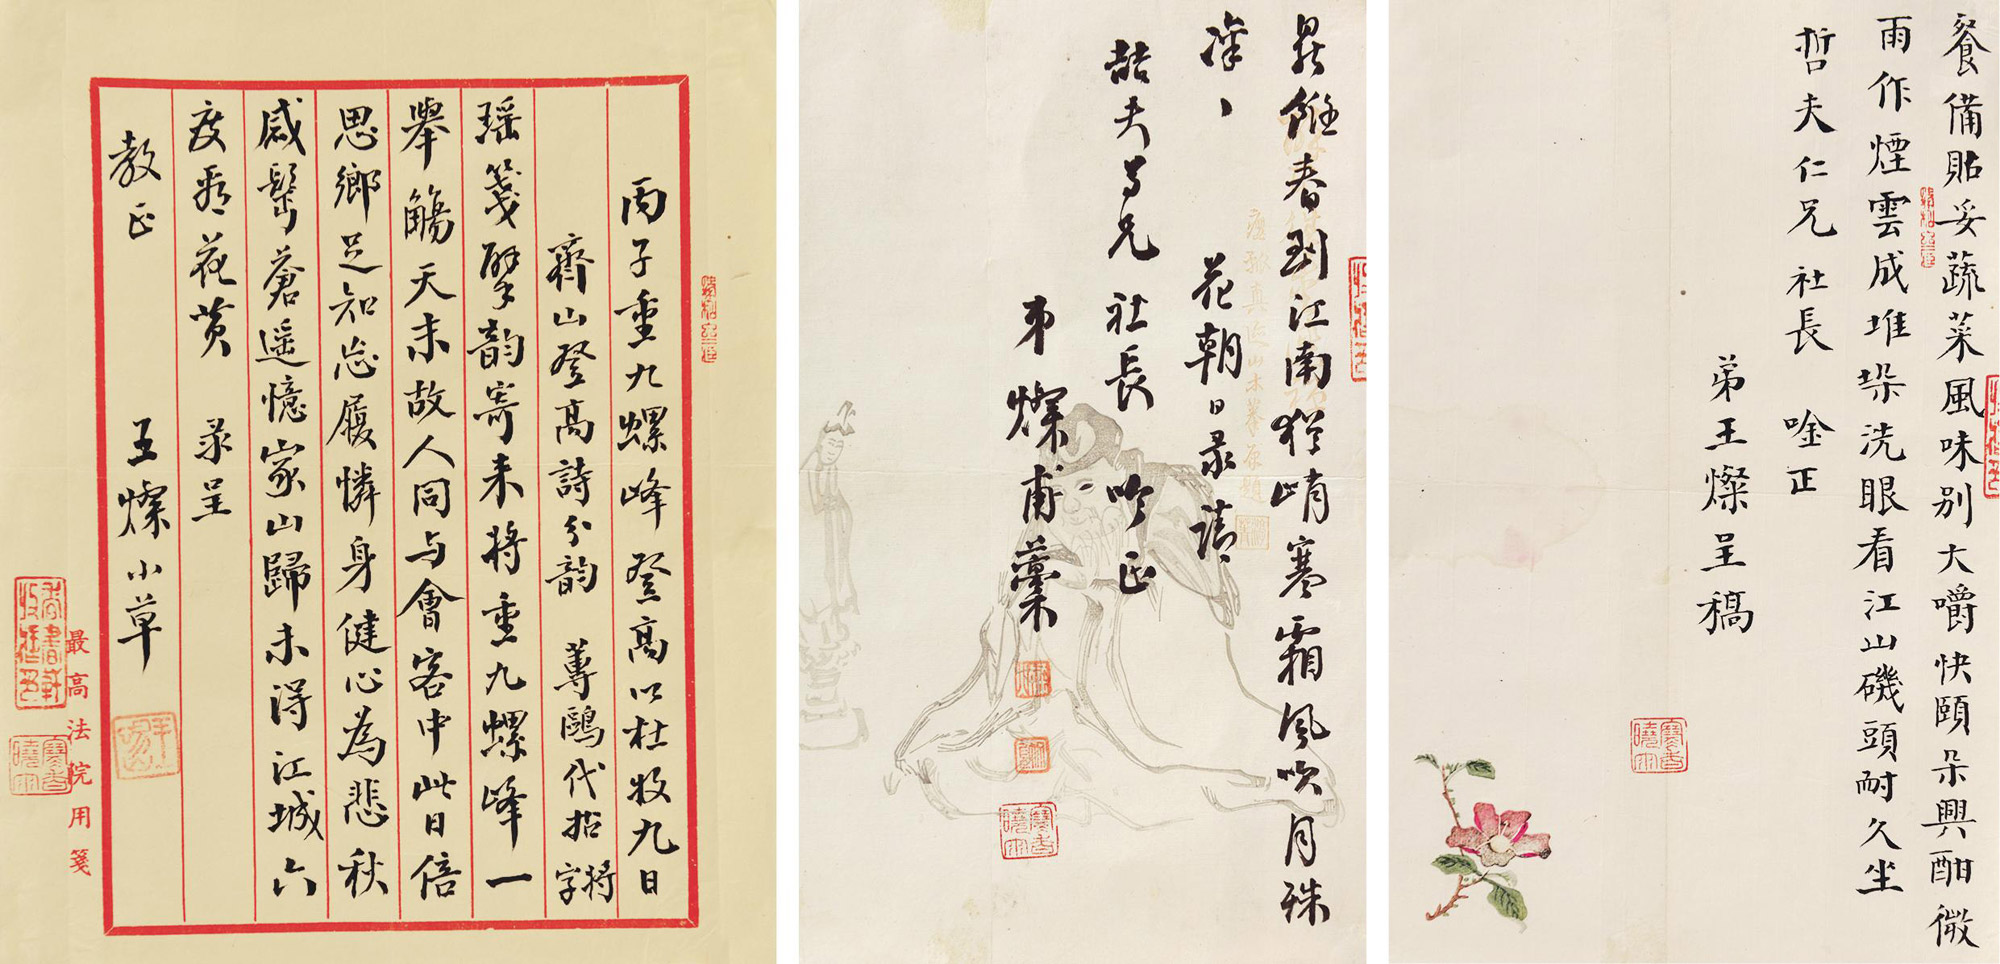 丙子重九螺峰登高以杜牧九日
齊山登高詩分韵 蓴鷗代拈將字
瑶箋擘韵寄来將重九螺峰一
舉觴天末故人同与會客中此日倍
思鄉足知忘履憐身健心為悲秋
感鬢蒼遥憶家山歸未得江城六
度看花黄 录呈
教正 王燦小草
最高法院用箋
雖春到江南犹峭寒霜風吹月殊
凜、 花朝日录請
喆夫吾兄社長吟正
弟燦甫藁
餐備貼妥蔬菜風味别大嚼快頤朵興酣微
雨作煙雲成堆垛洗眼看江山磯頭耐久坐
哲夫仁兄社長 唫正
弟王燦呈稿